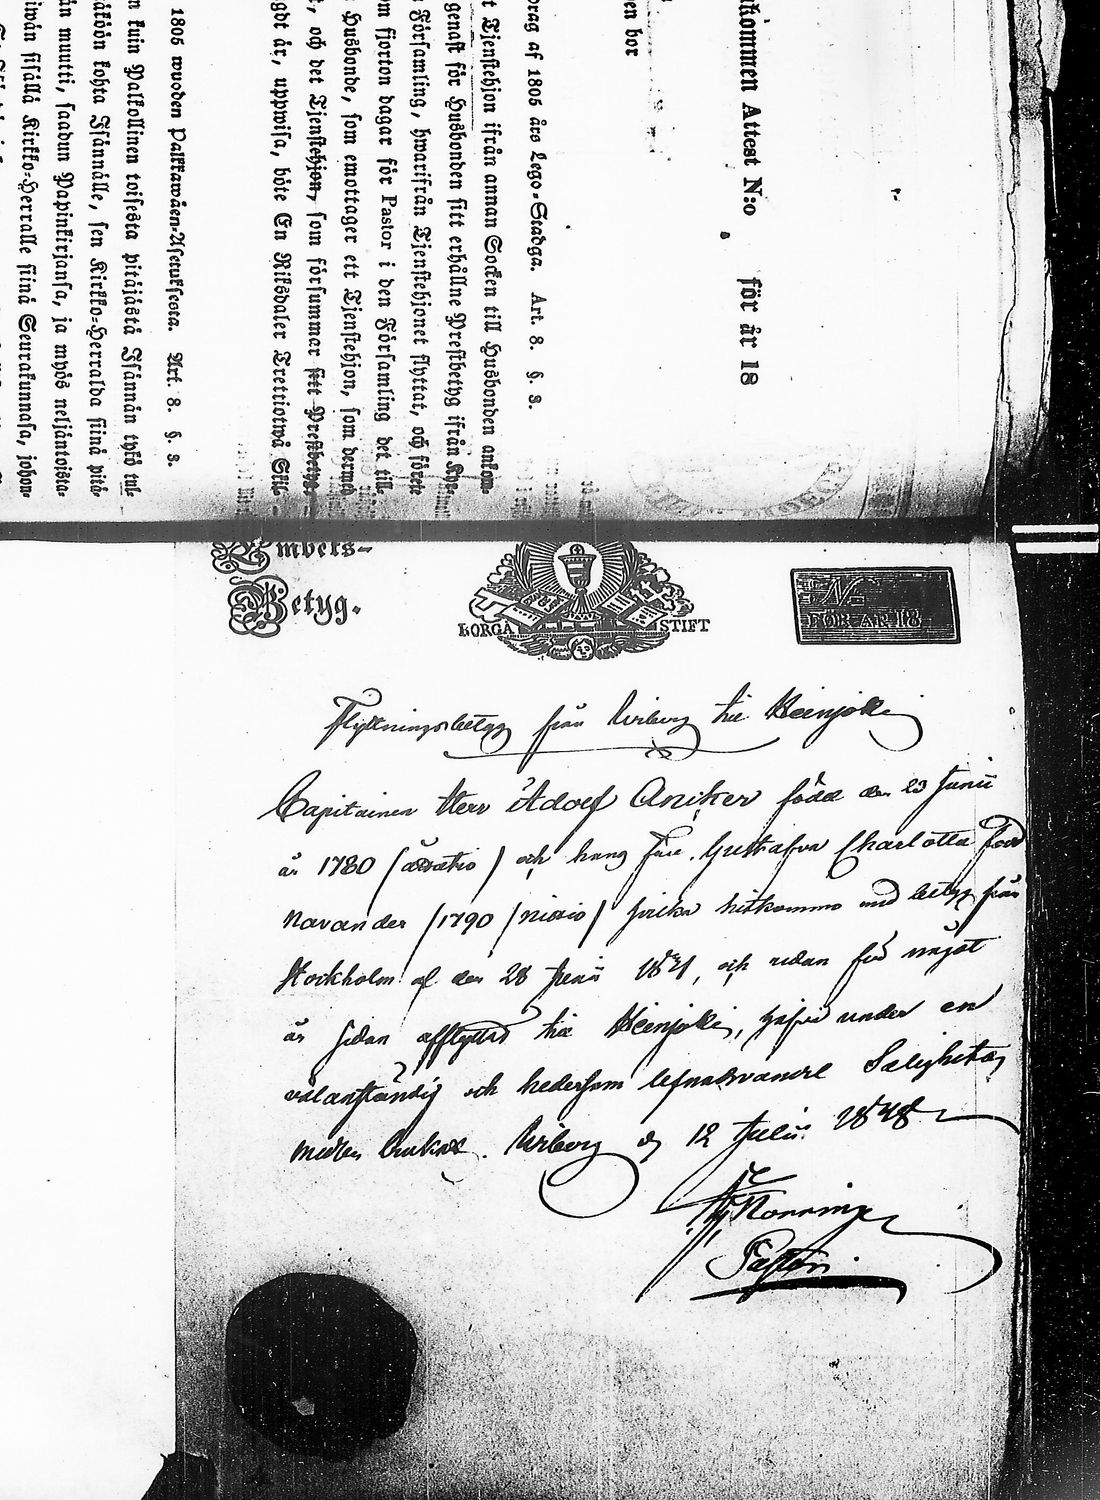 nkommen Attest N:o för år 18
en bor
drag af 1805 års Lego-Stadga. Art. 8. §. 8.
t Tjenstehjon ifrån annan Socken till Husbonden ankom-
genast för Husbonden sitt erhållne Prestbetyg ifrån Kyr-
Församling, hwarifrån Tjenstehjonet flyttat, och förete
om fjorton dagar för Pastor i den Församling det till-
Husbonde, som emottager ett Tjenstehjon, som dermed
, och det Tjenstehjon, som försummar sitt Prestbetyg
gdt år, uppwisa, böte En Riksdaler Trettiotwå Skil-
1805 wuoden Palkkawäen-Asetuksesta. Art. 8. §. 8.
n kuin Palkollinen toisesta pitäjästä Isännän tykö tul-
äköön kohta Isännälle, sen Kirkko-Herralda siinä pitä-
än muutti, saadun Papinkirjansa, ja myös neljäntoista-
iwän sisällä Kirkko-Herralle siinä Seurakunnasa, johon-
Embets-
Betyg.
BORGÅ STIFT
No
FÖR ÅR 18
Flyttningsbetyg från Wiborg till Heinjoki
Capitainen Herr Adolf Aniker född den 23 Junii
år 1780 ( ) och hans Fru Gustafva Charlotta född
Navander (1790 ( ) hitkommo med betyg från
Stockholm af den 28 Junii 1841, och sedan för något
år sedan afflyttat till Heinjoki, hafva under en
välanständig och hedersam lefnadsvandel Salighetes
medlen brukat. Wiborg d 12 Julii 1848
Pastor